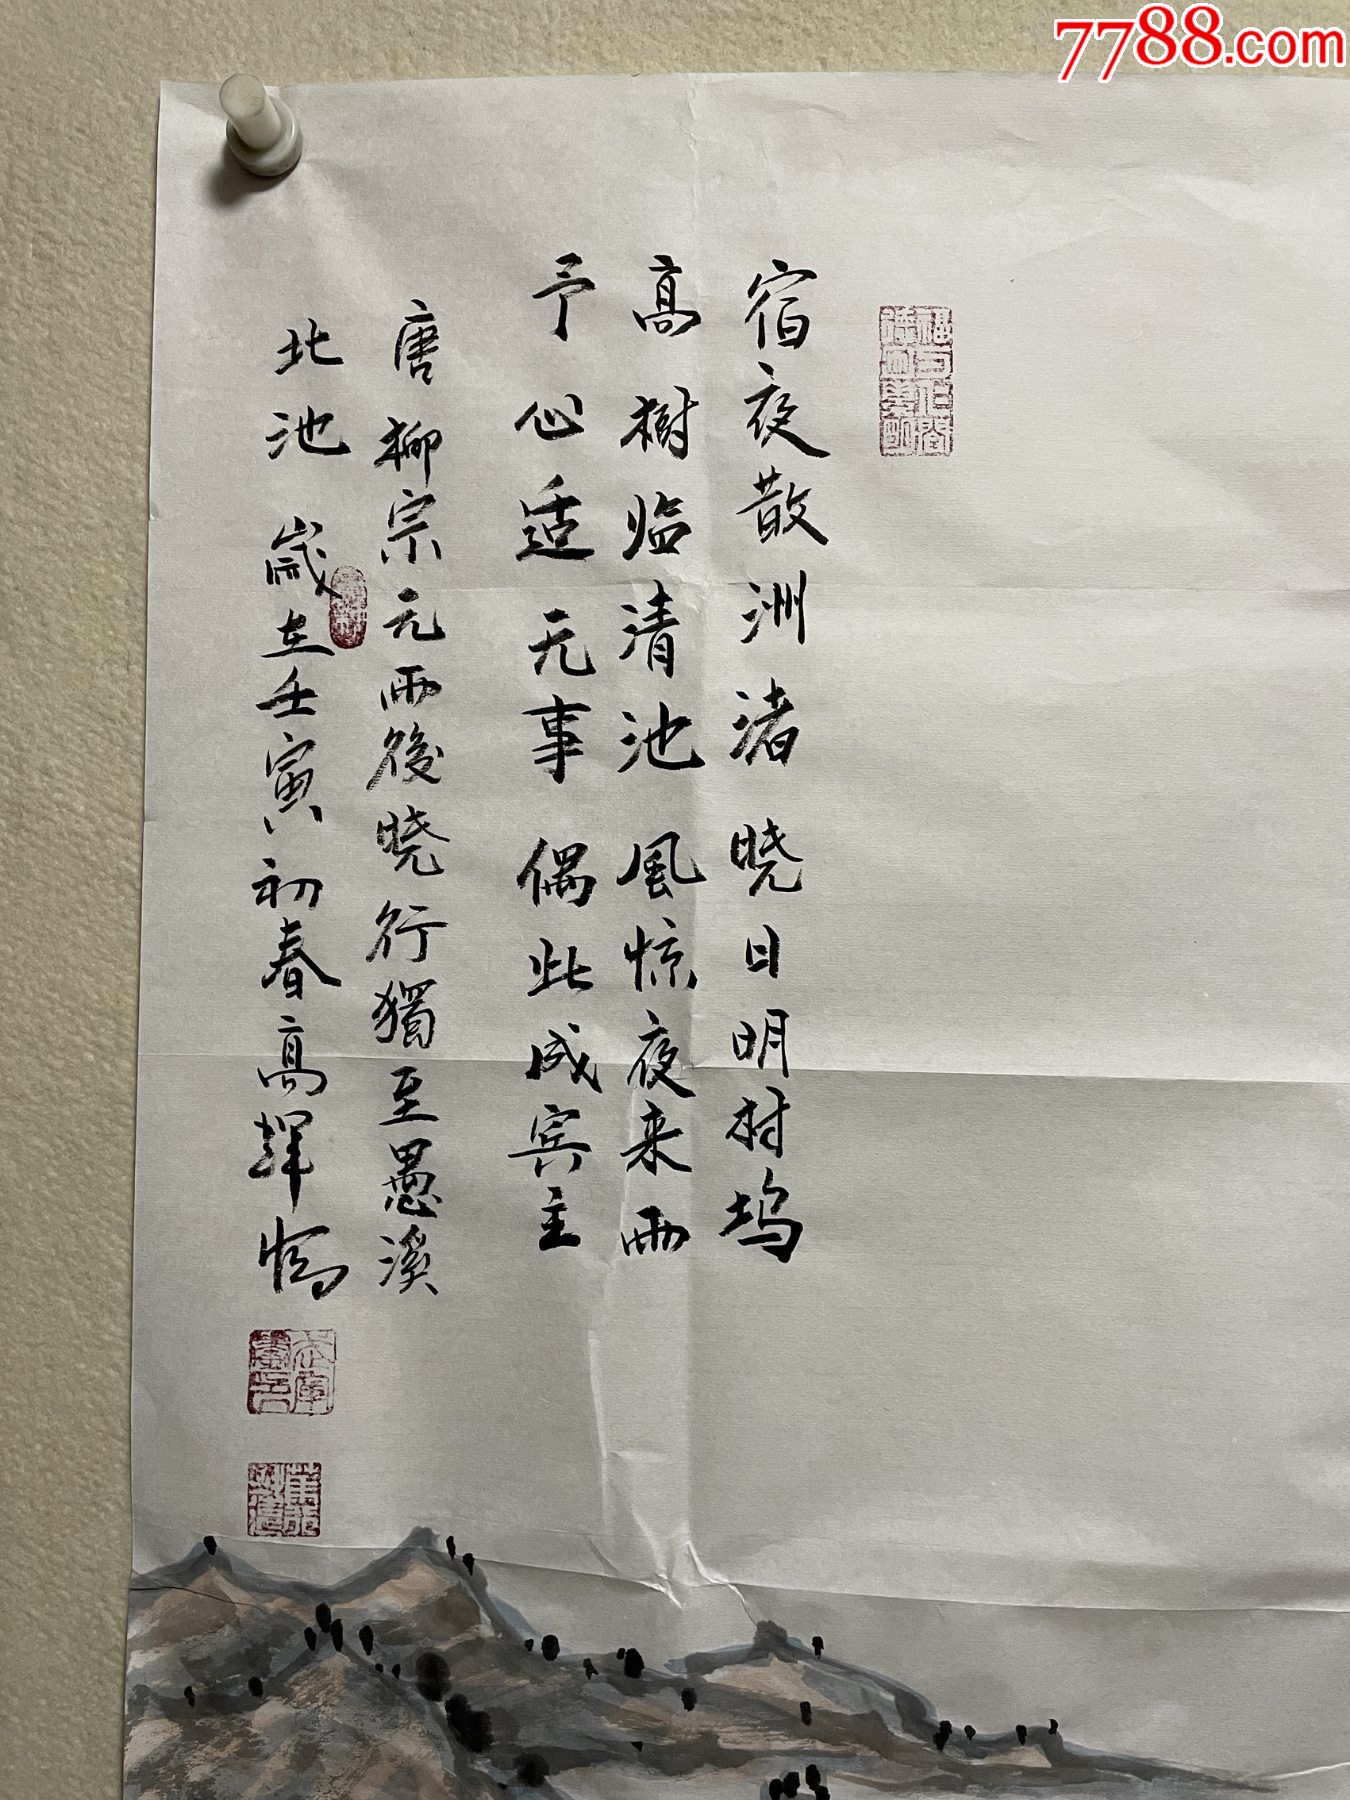 7788.com
宿夜散洲渚晓日明村坞
高樹临清池風惊夜来雨
予心适无事偶此成宾主
唐柳宗元雨後晓行獨至愚溪
北池歲在壬寅初春高輝